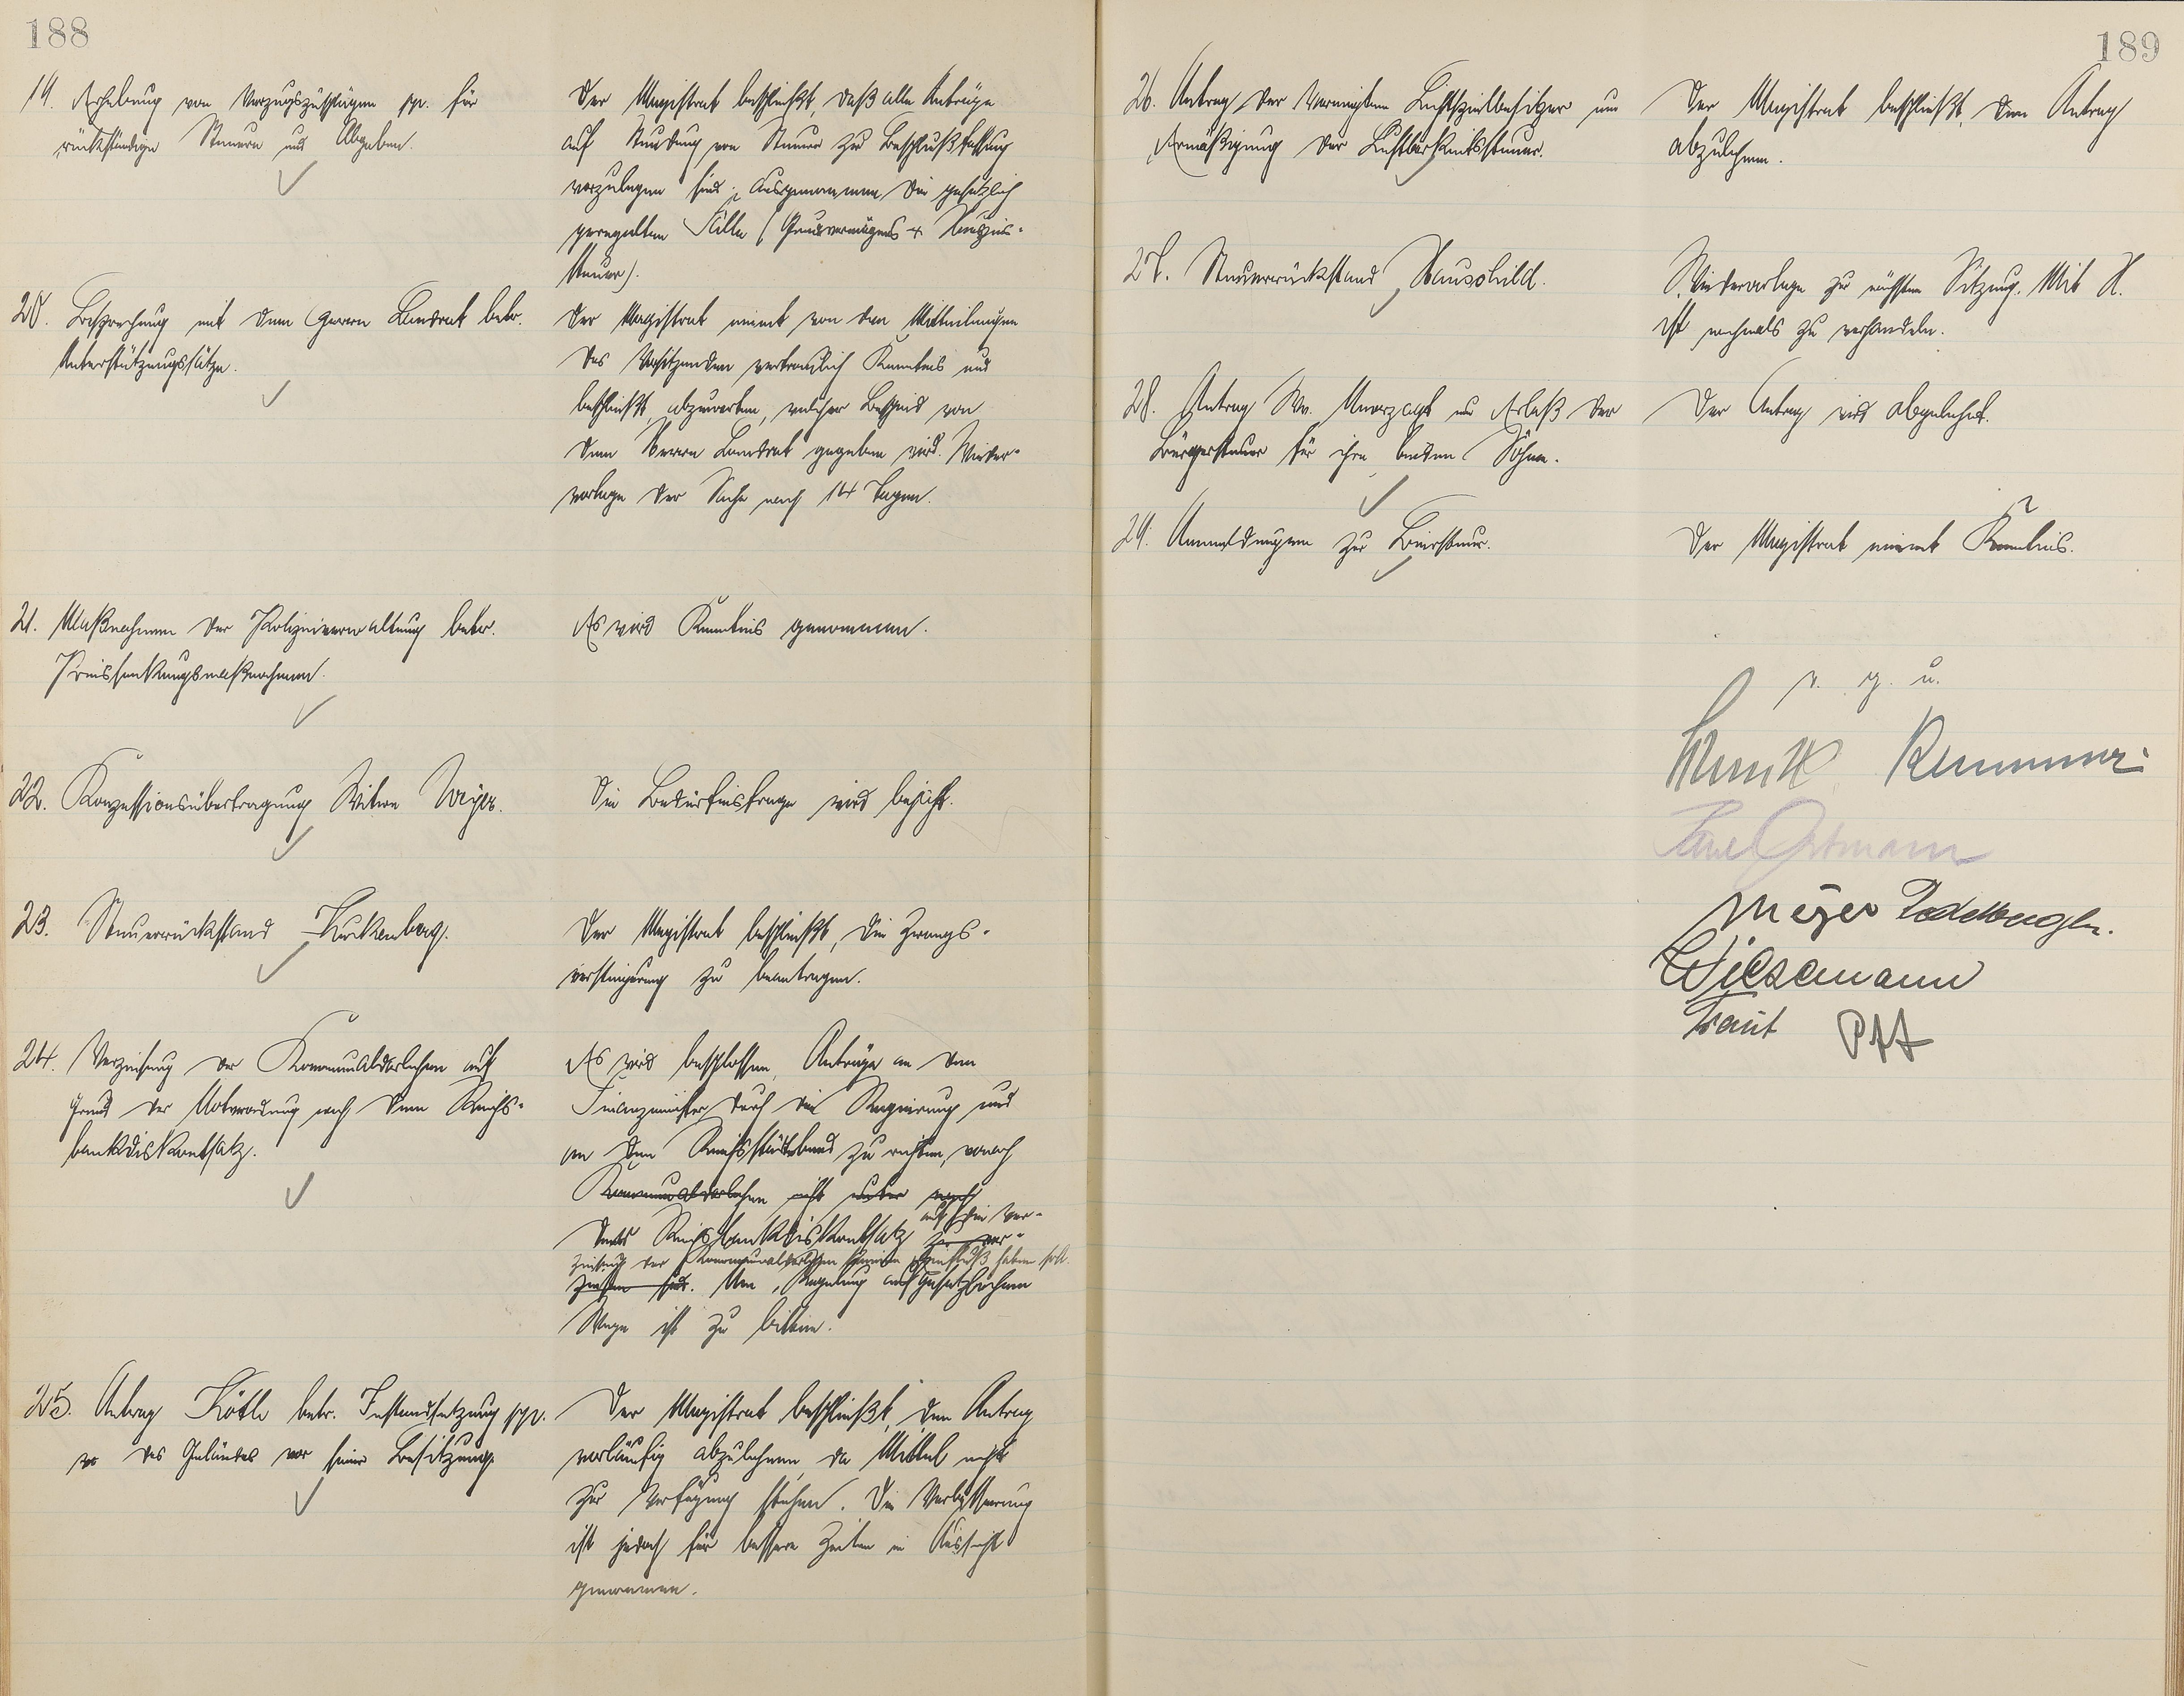 188
19. Erhebung von Verzugszuschlägen pp. für
rückständige Steuern und Abgaben.
Der Magistrat beschließt, daß alle Anträge
auf Stundung von Steuern zur Beschlußfassung
vorzulegen sind, ausgenommen die gesetzlich
geregelten Fälle (Grundvermögens- u. Hauszins-
steuer).
20. Besprechung mit dem Herrn Landrat betr.
Unterstützungssätze.
Der Magistrat nimmt von den Mitteilungen
des Vorsitzenden vertraulich Kenntnis und
beschließt, abzuwarten, welcher Bescheid von
dem Herrn Landrat gegeben wird. Wieder-
vorlage der Sache nach 14 Tagen.
21. Maßnahmen der Polizeiverwaltung betr.
Preissenkungsmaßnahmen.
Es wird Kenntnis genommen.
22. Konzessionsübertragung Witwe Meyer.
Die Bedürfnisfrage wird bejaht.
23. Steuerrückstand Kuckenberg.
Der Magistrat beschließt, die Zwangs-
versteigerung zu beantragen.
24. Verzinsung der Kommunaldarlehen auf
Grund der Notverordnung nach dem Reichs-
bankdiskontsatz.
Es wird beschlossen, Anträge an den
Finanzminister durch die Regierung und
an den Reichsstädtebund zu richten, wonach
Kommunaldarlehen nicht unter nach
dem Reichsbankdiskontsatz auf die Ver-
zu ver-
zinsung der Kommunaldarlehen keinen Einfluß haben soll.
zinsen sind. Um Regelung auf gesetzlichem
Wege ist zu bitten.
25. Antrag Köth betr. Instandsetzung pp.
des Geländes vor seiner Besitzung.
Der Magistrat beschließt, den Antrag
vorläufig abzulehnen, da Mittel nicht
zur Verfügung stehen. Die Verbesserung
ist jedoch für bessere Zeiten in Aussicht
genommen.
189
26. Antrag der Vereinigten Lichtspielbesitzer um
Ermäßigung der Lustbarkeitssteuer.
Der Magistrat beschließt, den Antrag
abzulehnen.
27. Steuerrückstand Hauschild.
Wiedervorlage zur nächsten Sitzung. Mit H.
ist nochmals zu verhandeln.
28. Antrag Ww. um Erlaß der
Bürgersteuer für ihre beiden Söhne.
Der Antrag wird abgelehnt.
29. Anmeldungen zur Biersteuer.
Der Magistrat nimmt Kenntnis.
v. g. u.
Ortmann
Meyer
Wiesemann
Traut